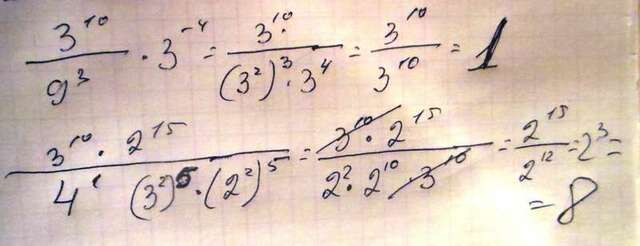 3¹⁰/9³ · 3⁻⁴ = 3¹⁰/((3²)³ · 3⁴) = 3¹⁰/3¹⁰ = 1
3¹⁰ · 2¹⁵/(4¹ (3²)⁵ · (2²)⁵) = 3¹⁰ · 2¹⁵/(2² · 2¹⁰ · 3¹⁰) = 2¹⁵/2¹² = 2³ =
= 8